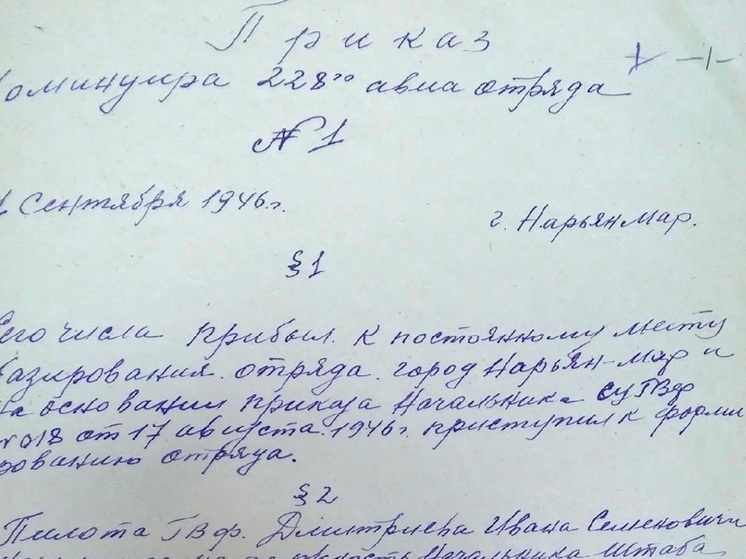 Приказ
Командира 228го авиа отряда
№ 1
Сентября 1946г.
г. Нарьян Мар.
§ 1
Сего числа прибыл. к постоянному месту
базирования. отряда. город Нарьян-Мар и
на основании приказа Начальника СУГВФ
№ 018 от 17 августа. 1946г. приступил к форми
рованию отряда.
§ 2
Пилота ГВФ. Дмитриева Ивана Семеновича
Начальника Штаба